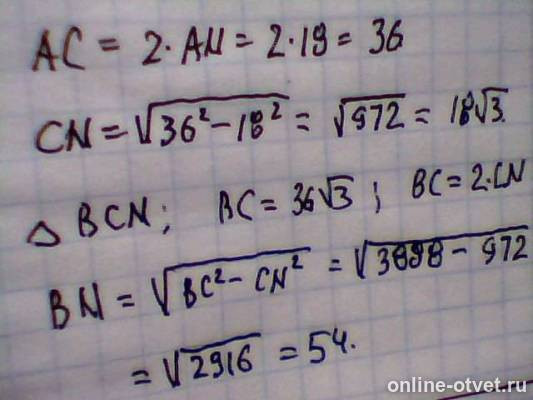 AC = 2·AN = 2·19 = 36
CN = √36² − 18² = √972 = 18√3.
△ BCN; BC = 36√3; BC = 2·CN
BN = √BC² − CN² = √3898 − 972
= √2916 = 54.
online-otvet.ru